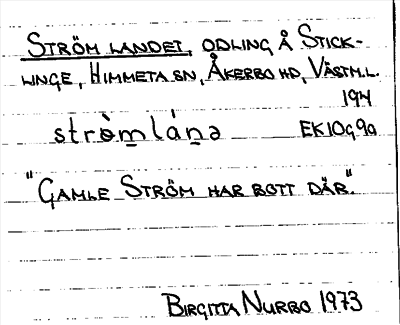 STRÖM LANDET, ODLING Å STICK-
LINGE, HIMMETA SN, ÅKERBO HD, VÄSTM.L.
194
strömlánə EK10g9a
"GAMLE STRÖM HAR BOTT DÄR".
BIRGITTA NURBO 1973